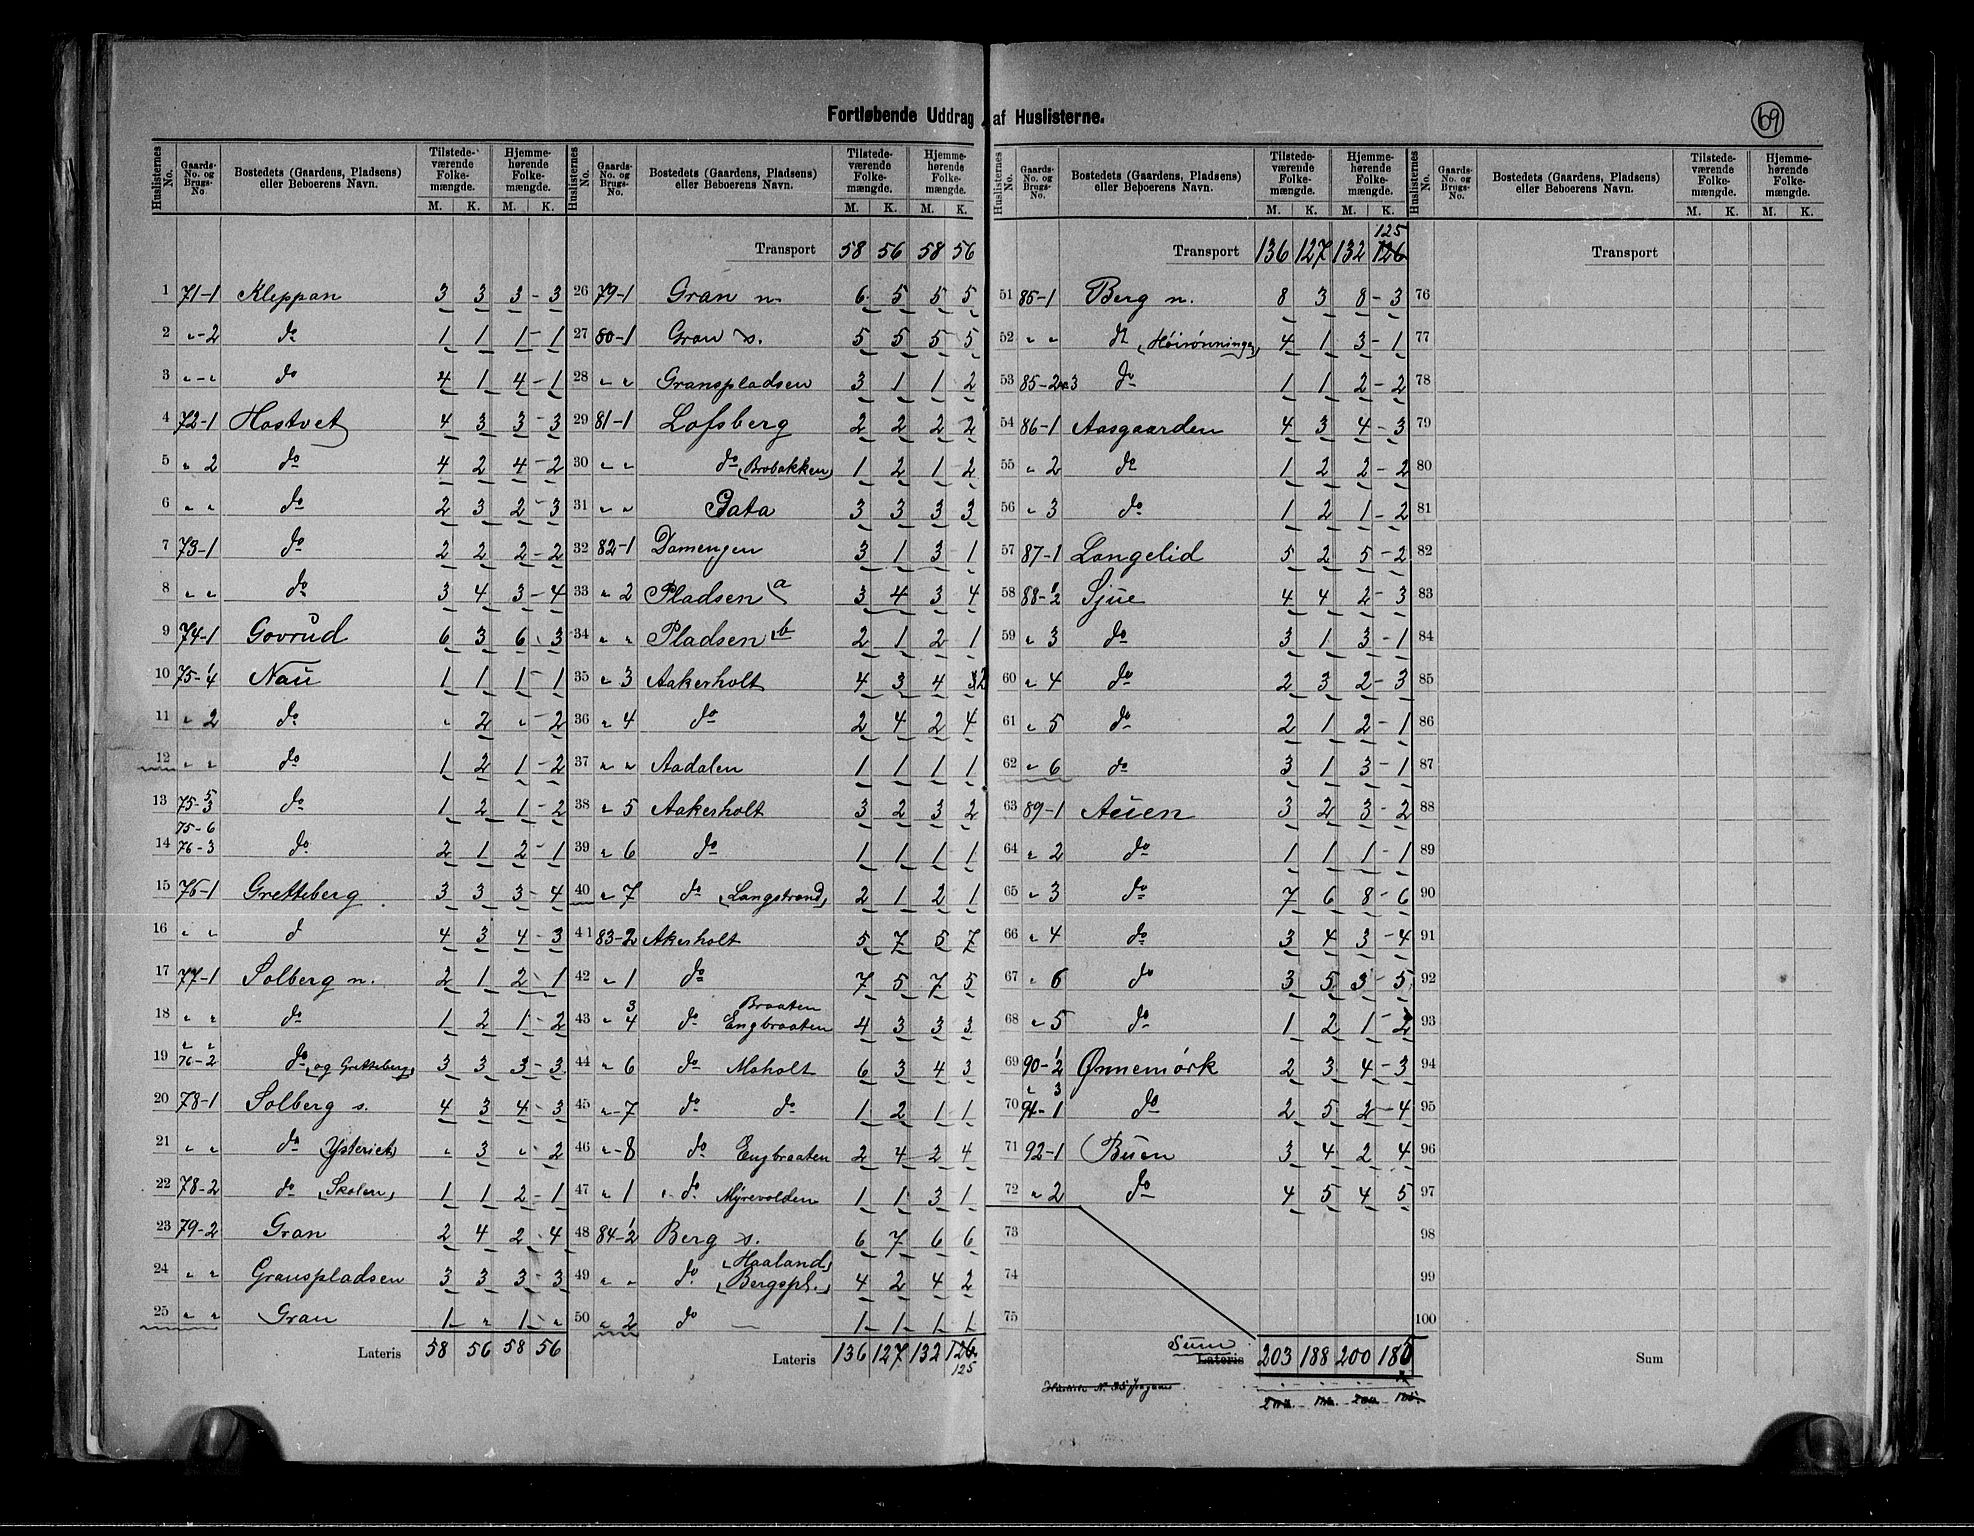 Fortløbende Uddrag af Huslisterne.
69
Huslisternes No. Gaards-No. og Brugs-No. Bostedets (Gaardens, Pladsens) eller Beboerens Navn. Tilstedeværende Folkemængde. M. K. Hjemmehørende Folkemængde. M. K.
1 71-1 Kleppan 3 3 3-3
2 „-2 do 1 1 1-1
3 „-„ do 4 1 4-1
4 72-1 Hostvet 4 3 3-3
5 „ 2 do 4 2 4-2
6 „ „ do 2 3 2-3
7 73-1 do 2 2 2-2
8 „ „ do 3 4 3-4
9 74-1 Govrud 6 3 6-3
10 75-1/4 Nau 1 1 1-1
11 „ 2 do „ 2 „-2
12 „ „ do 1 2 1-2
13 75-5/3 do 1 2 1-2
14 75-6 76-3 do 2 1 2-1
15 76-1 Gretteberg 3 3 3-4
16 „ „ d 4 3 4-3
17 77-1 Solberg n. 2 1 2-1
18 „ „ do 1 2 1-2
19 „ „ 76-2 do (og Gretteberg) 3 3 3-3
20 78-1 Solberg s. 4 3 4-3
21 „ „ do (Ysteriet) „ 3 „ 2
22 78-2 do (Skolen) 1 1 2-1
23 79-2 Gran 2 4 2-4
24 „ „ Granspladsen 3 3 3-3
25 „ „ Gran 1 „ 1 „
Lateris 58 56 58 56
Huslisternes No. Gaards-No. og Brugs-No. Bostedets (Gaardens, Pladsens) eller Beboerens Navn. Tilstedeværende Folkemængde. M. K. Hjemmehørende Folkemængde. M. K.
Transport 58 56 58 56
26 79-1 Gran n. 6 5 5 5
27 80-1 Gran s. 5 5 5 5
28 „ „ Granspladsen 3 1 1 2
29 81-1 Lofsberg 2 2 2 2
30 „ „ do (Brobakken) 1 2 1 2
31 „ „ Gata 3 3 3 3
32 82-1 Damengen 3 1 3 1
33 „ 2 Pladsen a 3 4 3 4
34 „ „ Pladsen b 2 1 2 1
35 „ 3 Aakerholt 4 3 4 32
36 „ 4 do 2 4 2 4
37 „ „ Aadalen 1 1 1 1
38 „ 5 Aakerholt 3 2 3 2
39 „ 6 do 1 1 1 1
40 „-7 do (Langstrand) 2 1 2 1
41 83-2 Akerholt 5 7 5 7
42 „ 1 do 7 5 7 5
43 „ 3/4 do Braaten Engbraaten 4 3 3 3
44 „ 6 do Moholt 6 3 4 3
45 „-7 do do 1 2 1 1
46 „-8 do Engbraaten 2 4 2 4
47 „ 1 do Myrevolden 1 1 3 1
48 84-1/2 Berg s. 6 7 6 6
49 „ „ do (Haaland) (Bergspl.) 4 2 4 2
50 „ 2 do — 1 1 1 1
Lateris 136 127 132 126
125
Huslisternes No. Gaards-No. og Brugs-No. Bostedets (Gaardens, Pladsens) eller Beboerens Navn. Tilstedeværende Folkemængde. M. K. Hjemmehørende Folkemængde. M. K.
125
Transport 136 127 132 126
51 85-1 Berg n. 8 3 8-3
52 „ „ do (Høirønningen) 4 1 3-1
53 85-2&3 do 1 1 2-2
54 86-1 Aasgaarden 4 3 4-3
55 „ 2 do 1 2 2-2
56 „ 3 do 1 2 1-2
57 87-1 Langelid 5 2 5-2
58 88-1/2 Sjue 4 4 2-3
59 „ 3 do 3 1 3-1
60 „ 4 do 2 3 2-3
61 „ 5 do 2 1 2-1
62 „ 6 do 3 1 3-1
63 89-1 Auen 3 2 3-2
64 „ 2 do 1 1 1-1
65 „ 3 do 7 6 8-6
66 „ 4 do 3 4 3-4
67 „ 6 do 3 5 3-5
68 „ 5 do 1 2 1-2
69 90-1/2 Ønnemørk 2 3 4-3
70 „ 3 91-1 do 2 5 2-4
71 92-1 Buen 3 4 2 4
72 „ 2 do 4 5 4 5
73
74
75
Sum
Lateris 203 188 200 185
Huslisternes No. Gaards-No. og Brugs-No. Bostedets (Gaardens, Pladsens) eller Beboerens Navn. Tilstedeværende Folkemængde. M. K. Hjemmehørende Folkemængde. M. K.
Transport
76
77
78
79
80
81
82
83
84
85
86
87
88
89
90
91
92
93
94
95
96
97
98
99
100
Sum